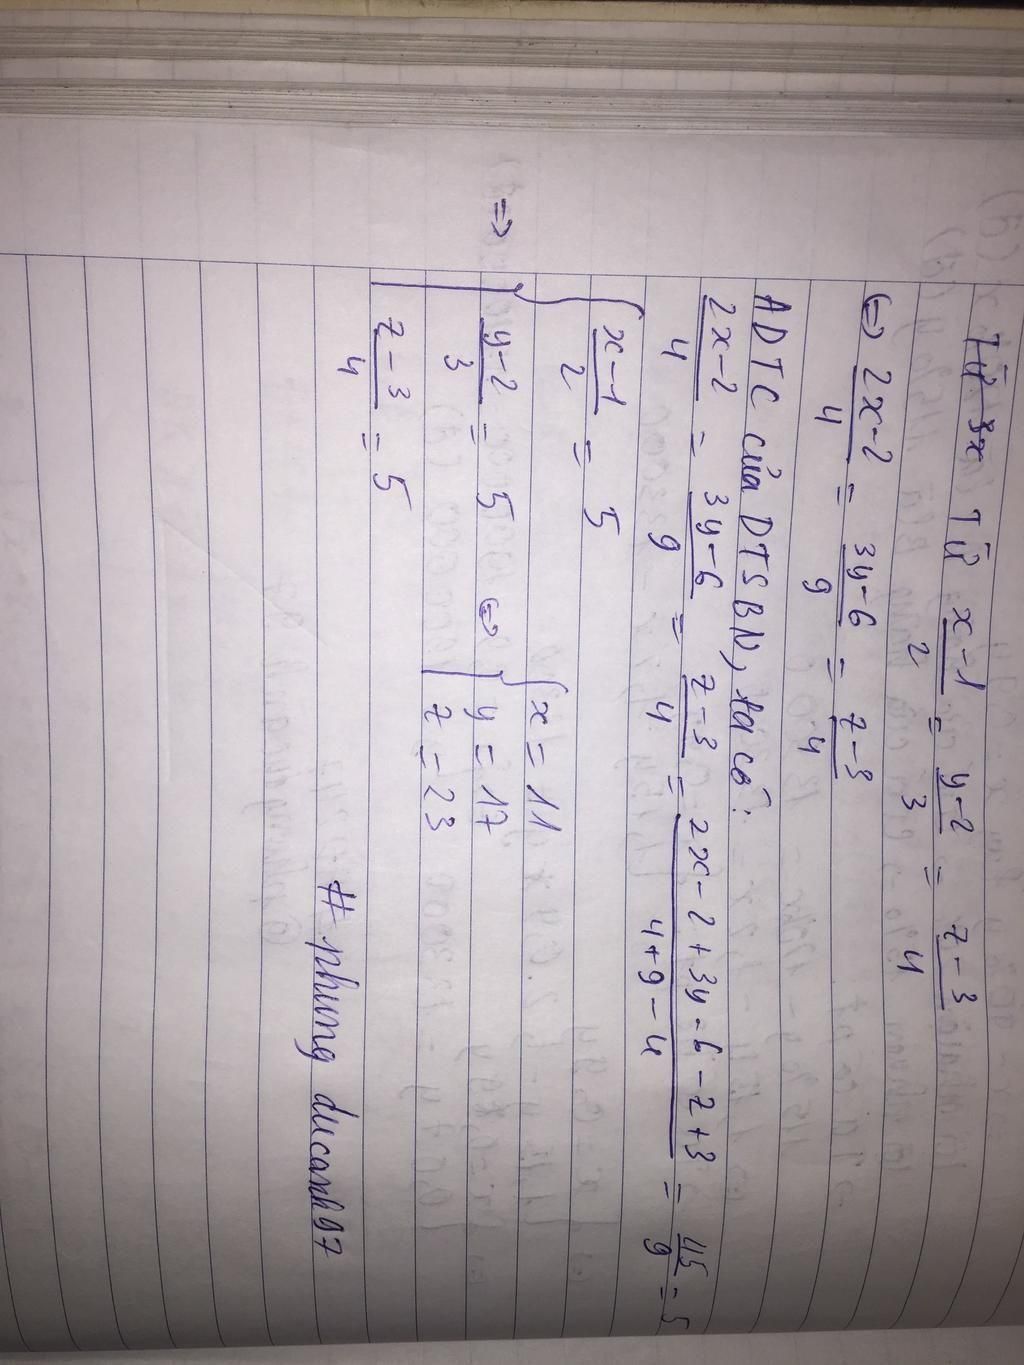 Từ 3x Từ x-1/2 = y-2/3 = z-3/4
⇔ 2x-2/4 = 3y-6/9 = z-3/4
ADTC của DTSBN, ta có:
2x-2/4 = 3y-6/9 = z-3/4 = 2x-2+3y-6-z+3/4+9-4 = 45/9 = 5
⇒ { x-1/2 = 5
y-2/3 = 5 ⇔ { x = 11
y = 17
z-3/4 = 5 z = 23
# phung ducanh97